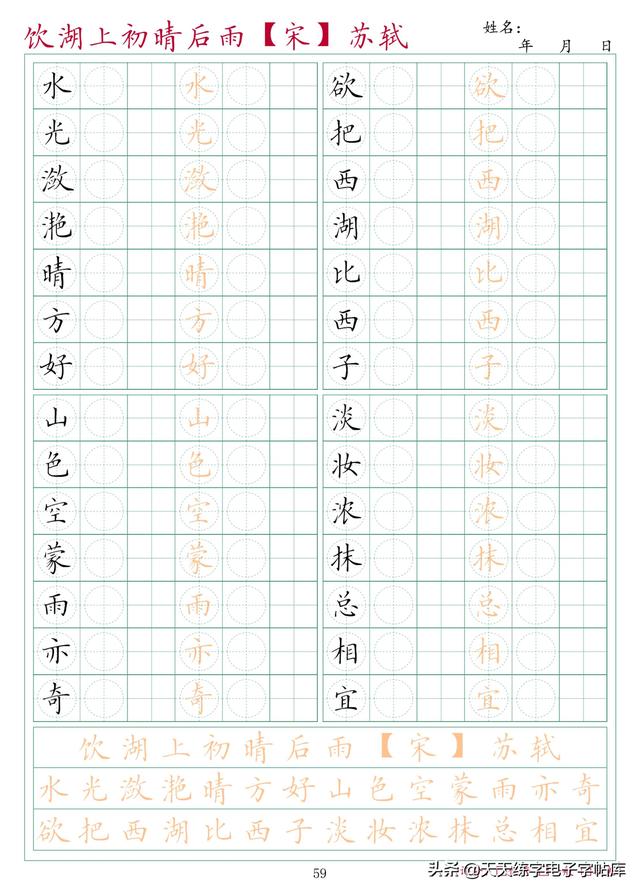 饮湖上初晴后雨【宋】苏轼
姓名：
年 月 日
水光潋滟晴方好
水光潋滟晴方好
欲把西湖比西子
欲把西湖比西子
山色空蒙雨亦奇
山色空蒙雨亦奇
淡妆浓抹总相宜
淡妆浓抹总相宜
饮湖上初晴后雨【宋】苏轼
水光潋滟晴方好山色空蒙雨亦奇
欲把西湖比西子淡妆浓抹总相宜
59
头条@天天练字电子字帖库